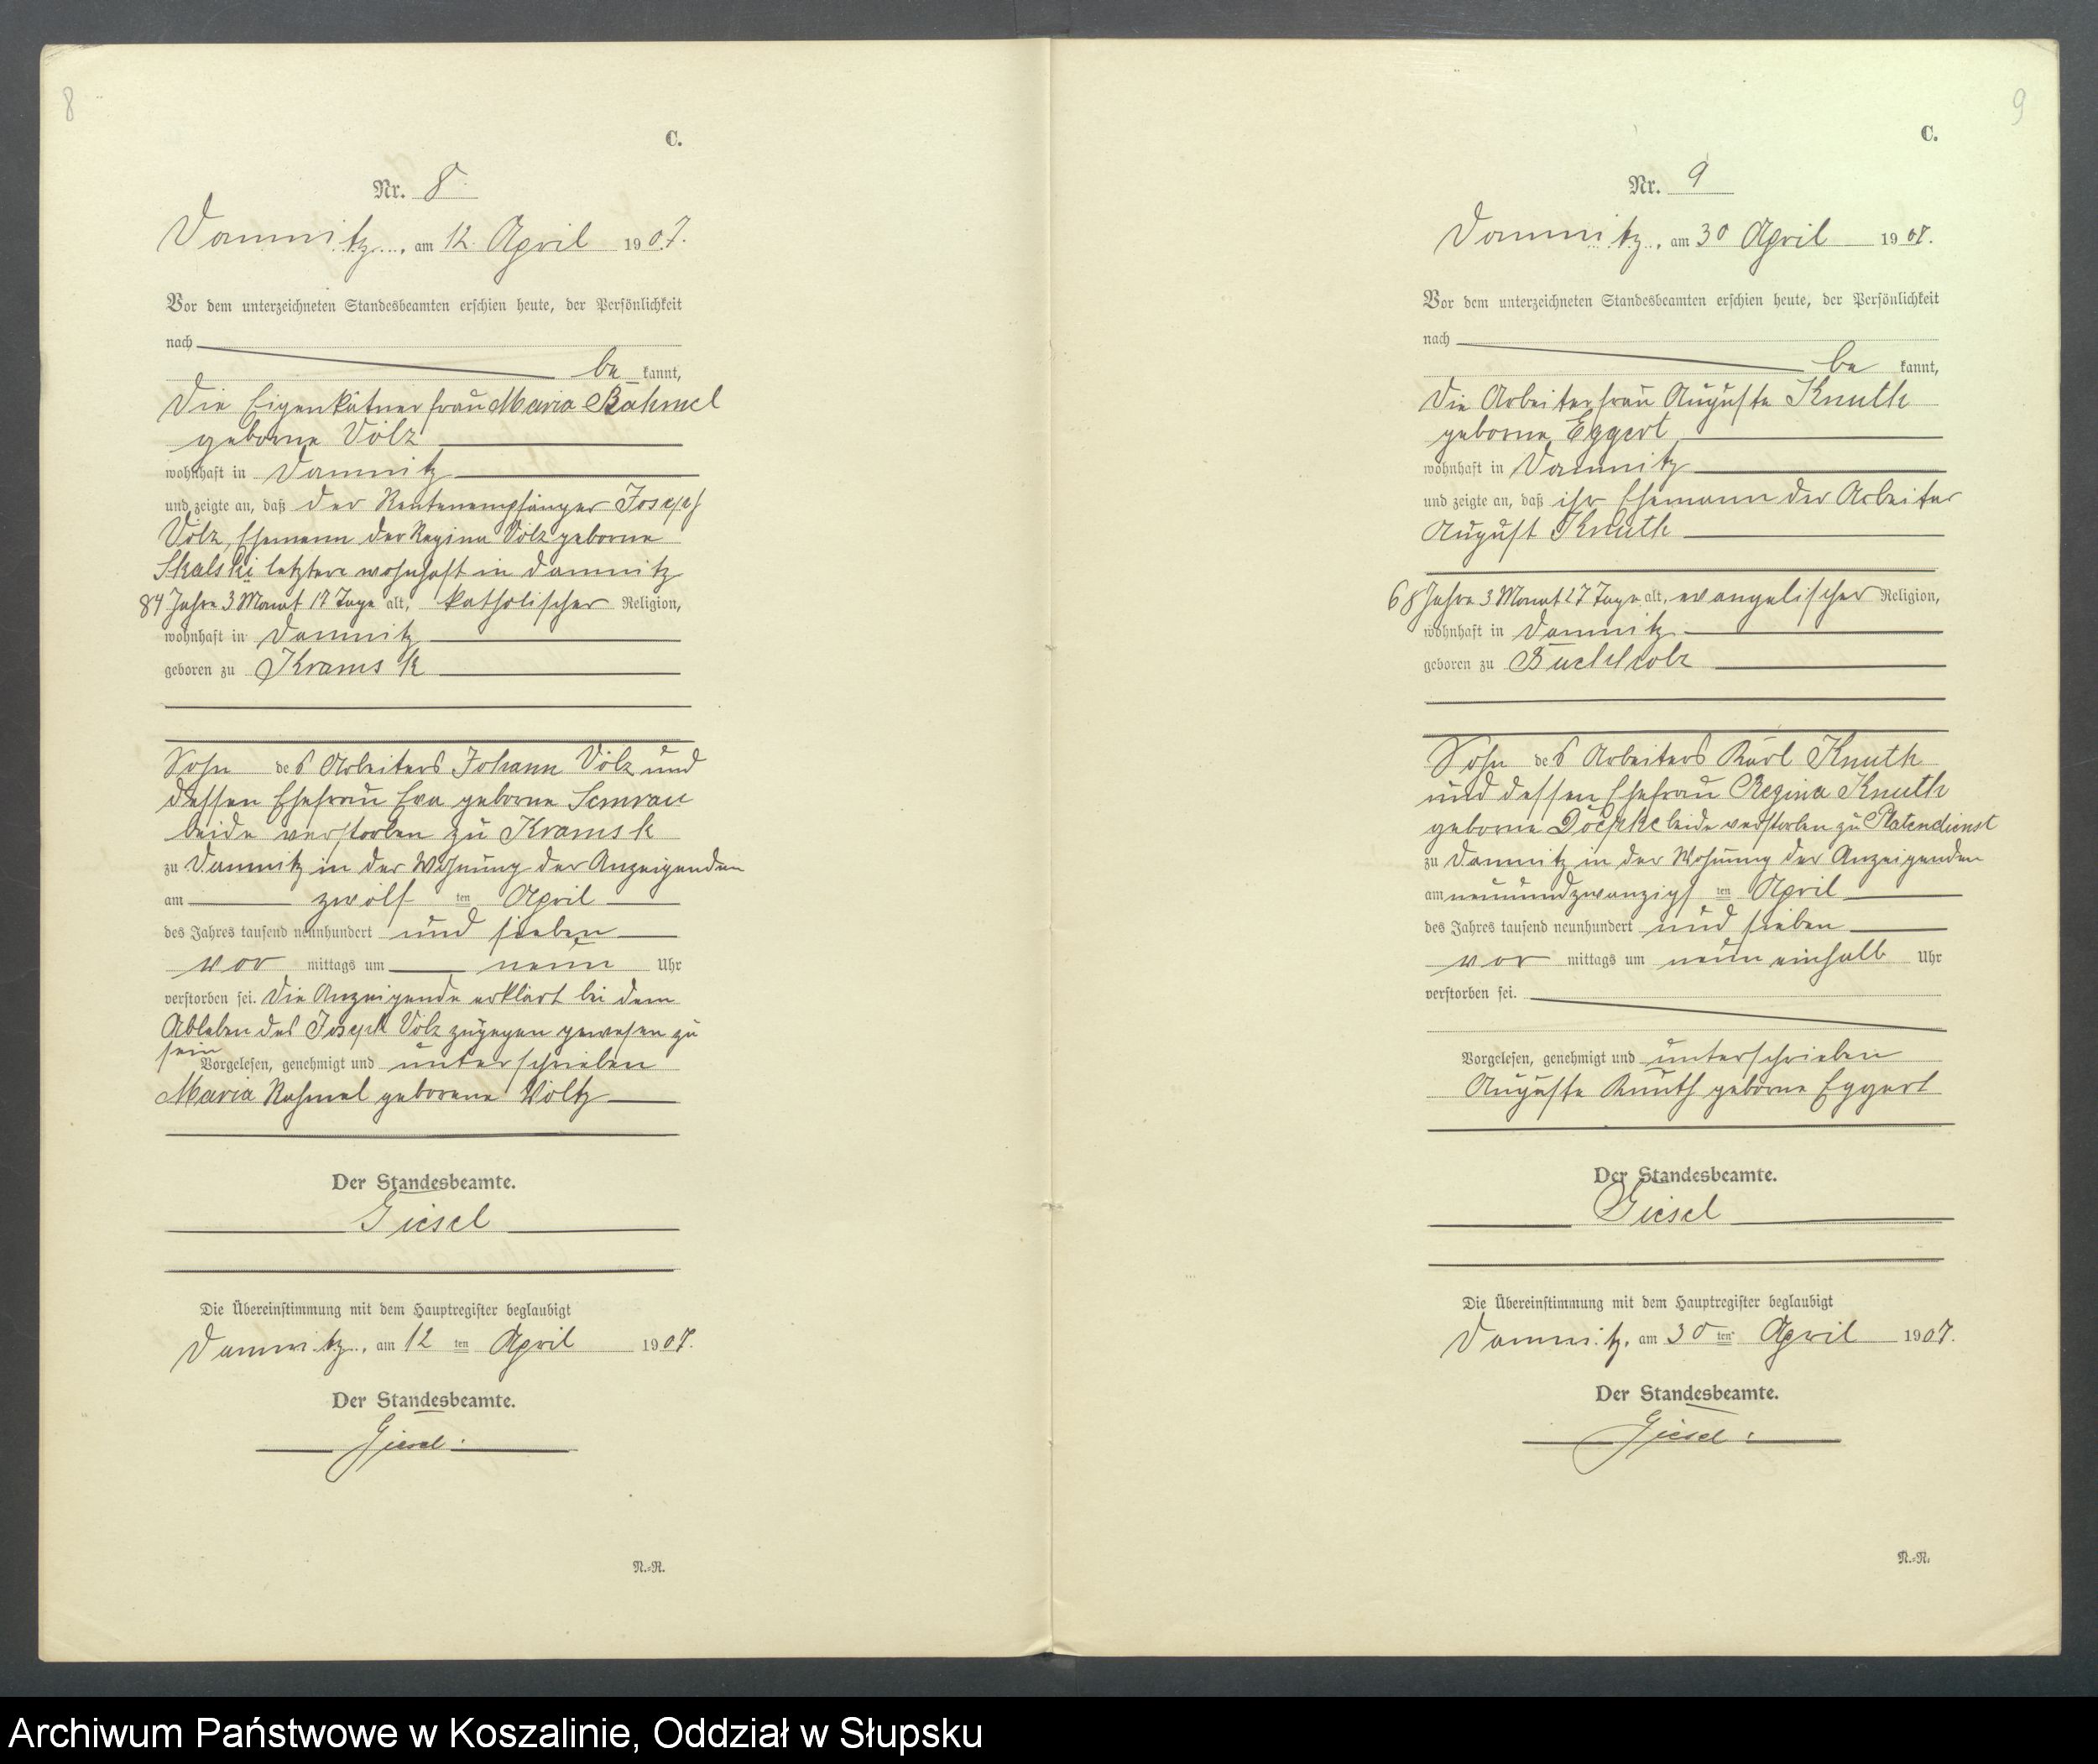 8
C.
Nr. 8
Damnitz, am 12. April 1907.
Vor dem unterzeichneten Standesbeamten erschien heute, der Persönlichkeit
nach
be kannt,
die Eigenkätnerfrau Maria
geborne Völz
wohnhaft in Damnitz
und zeigte an, daß der Rentenempfänger Joseph
Völz, Ehemann der Regina Völz geborne
Skalski letztere wohnhaft in Damnitz
84 Jahre 3 Monat 17 Tage alt, katholischer Religion,
wohnhaft in Damnitz
geboren zu Kramsk
Sohn des Arbeiters Johann Völz und
dessen Ehefrau Eva geborne Semrau
beide verstorben zu Kramsk
zu Damnitz in der Wohnung der Anzeigenden
am zwölf ten April
des Jahres tausend neunhundert und sieben
vor mittags um neun Uhr
verstorben sei. Die Anzeigende erklärt bei dem
Ableben des Joseph Völz zugegen gewesen zu
sein
Vorgelesen, genehmigt und unterschrieben
Maria Rahmel geborene Völtz
Der Standesbeamte.
Giesel
Die Übereinstimmung mit dem Hauptregister beglaubigt
Damnitz, am 12 ten April 1907.
Der Standesbeamte.
Giesel.
N.-R.
9
C.
Nr. 9
Damnitz, am 30 April 1907.
Vor dem unterzeichneten Standesbeamten erschien heute, der Persönlichkeit
nach
be kannt,
die Arbeiterfrau Auguste Knuth
geborne Eggert
wohnhaft in Damnitz
und zeigte an, daß ihr Ehemann der Arbeiter
August Knuth
68 Jahre 3 Monat 27 Tage alt, evangelischer Religion,
wohnhaft in Damnitz
geboren zu Buchholz
Sohn des Arbeiters Karl Knuth
und dessen Ehefrau Regina Knuth
geborne Döepke beide verstorben zu Platendienst
zu Damnitz in der Wohnung der Anzeigenden
am neunundzwanzigs ten April
des Jahres tausend neunhundert und sieben
vor mittags um neun einhalb Uhr
verstorben sei.
Vorgelesen, genehmigt und unterschrieben
Auguste Knuth geborne Eggert
Der Standesbeamte.
Giesel
Die Übereinstimmung mit dem Hauptregister beglaubigt
Damnitz, am 30 ten April 1907.
Der Standesbeamte.
Giesel.
N.-R.
Archiwum Państwowe w Koszalinie, Oddział w Słupsku